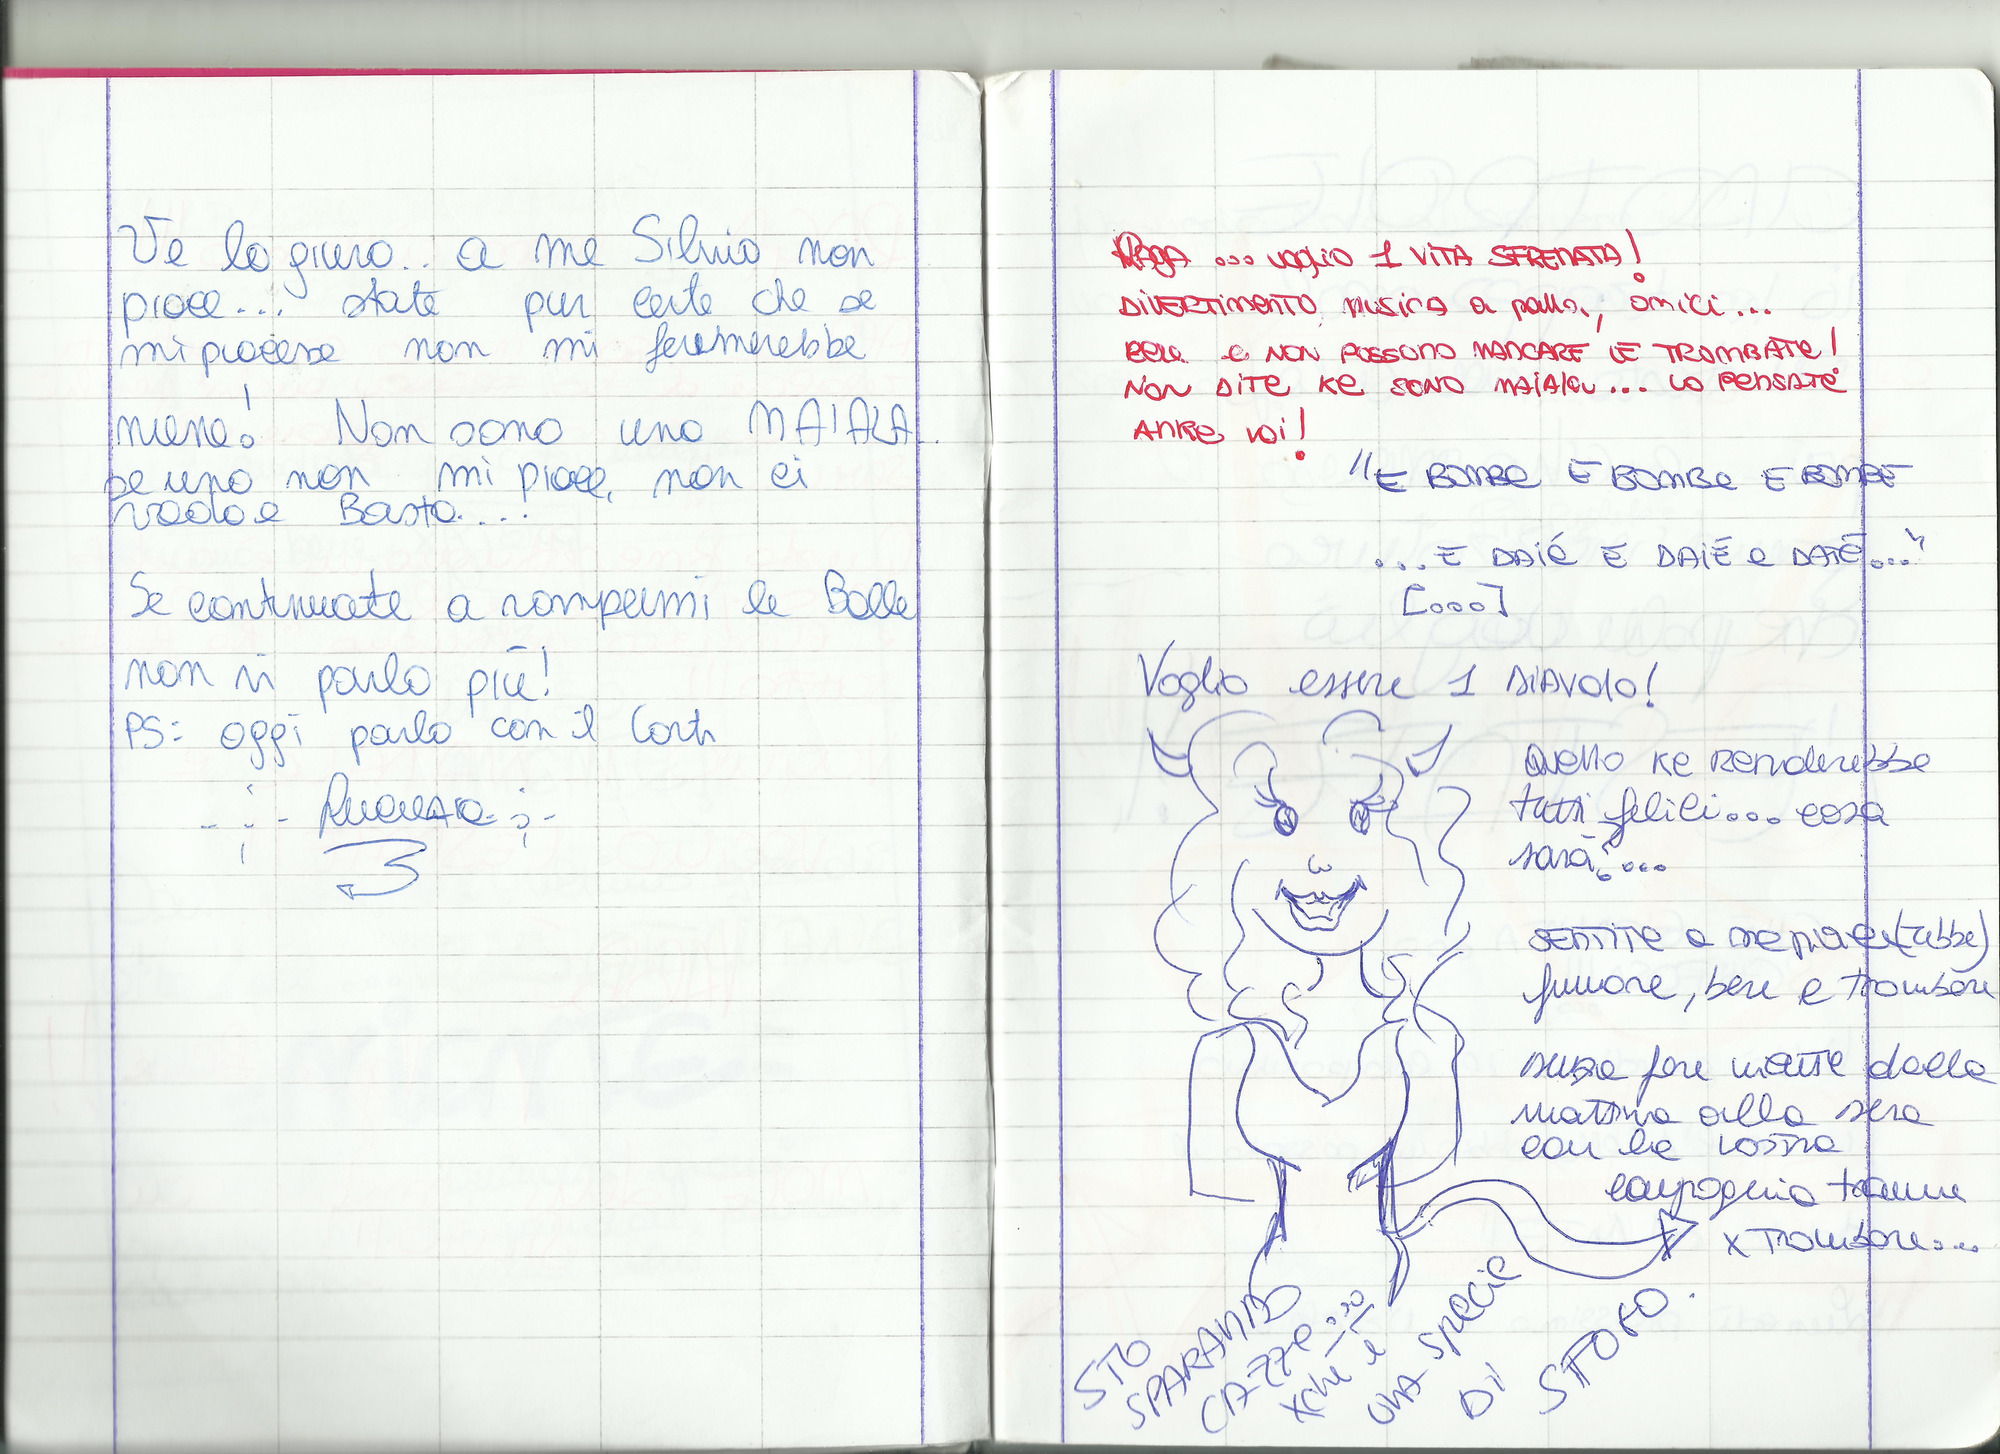 Ve lo giuro.. a me Silvio non
piace... state pur certe che se
mi piacesse non mi fermerebbe
niene! Non sono una MAIALA..
se uno non mi piace, non ci
vado e Basta....!
Se continuate a rompermi le Balle
non vi parlo più!
PS: oggi parlo con il Corti
Raga ... voglio 1 VITA SFRENATA!
DIVERTIMENTO, MUSICA a palla, amici...
BERE e NON POSSONO MANCARE LE TROMBATE!
NON DITE KE SONO MAIALA... LO PENSATE
ANKE VOI!
"E BOMBE E BOMBE E BOMBE
...E DAIÉ E DAIÉ e DAIÉ..."
[...]
Voglio essere 1 DIAVOLO!
Quello ke renderebbe
tutti felici... cosa
sarà?...
SENTITE a me piace (rebbe)
fumare, bere e trombare
senza fare niente dalla
mattina alla sera
con la vostra
compagnia tranne
x trombare....
STO
SPARANDO
CAZZE...
xché è
UNA SPECIE
DI
SFOGO.